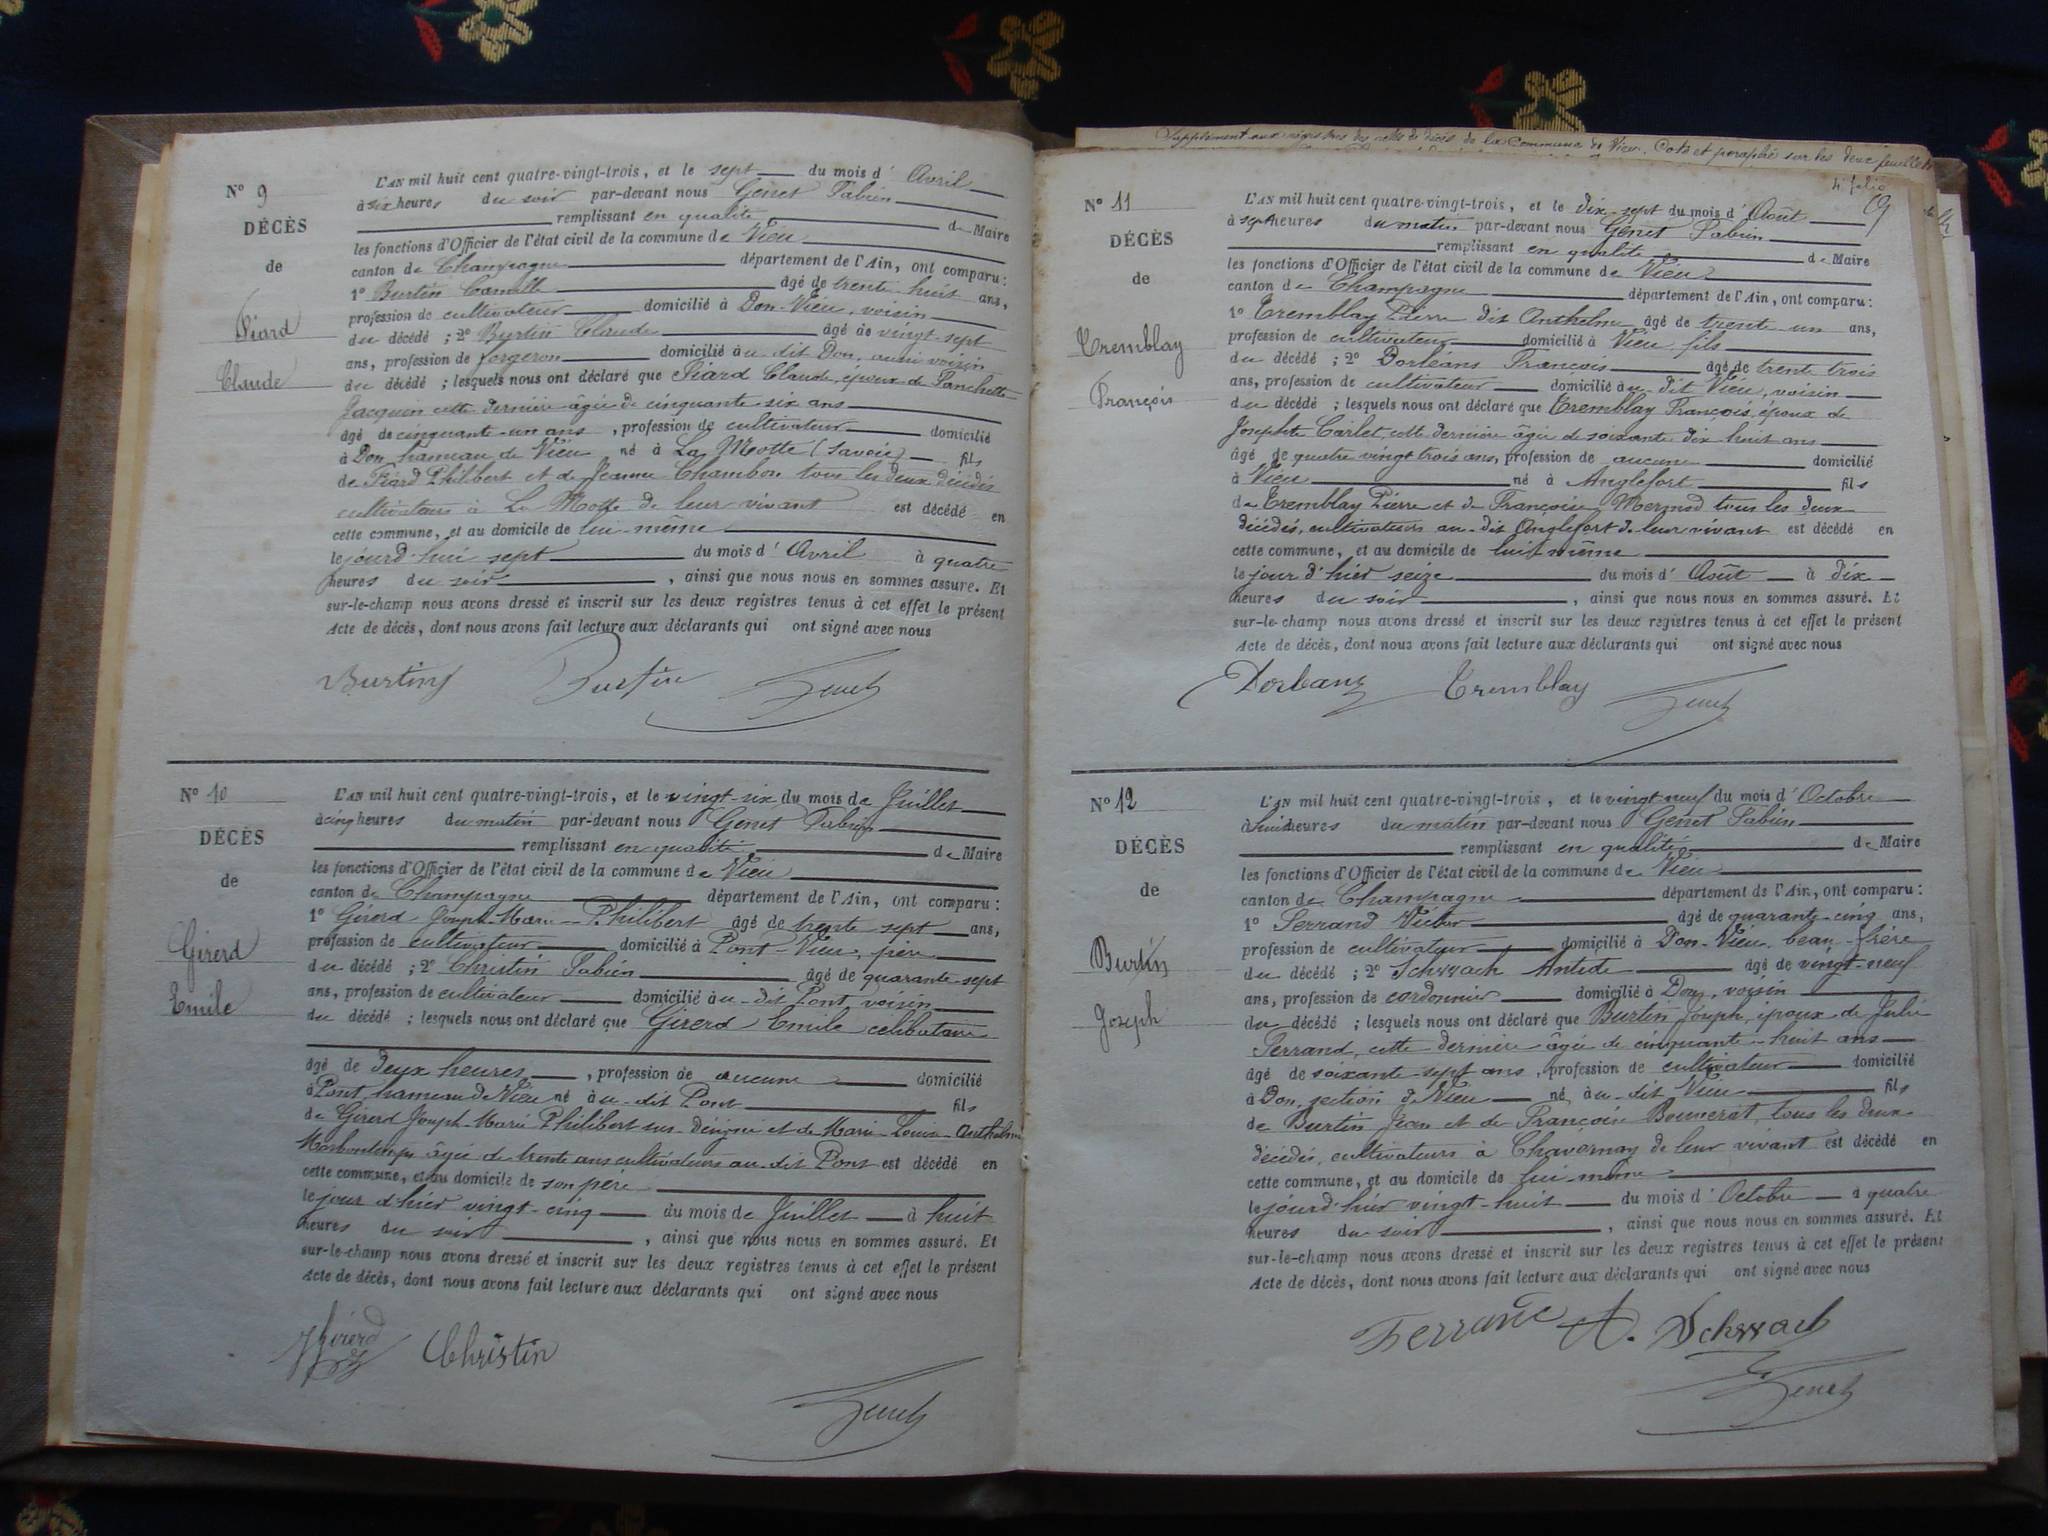 N° 9
DÉCÈS
de
Piard
Claude
L'AN mil huit cent quatre-vingt-trois, et le sept du mois d' Avril
à six heures du soir par-devant nous Genet Fabien
remplissant en qualité de Maire
les fonctions d'Officier de l'état civil de la commune de Vieu
canton de Champagne département de l'Ain, ont comparu :
1° Burtin Camille âgé de trente huit ans,
profession de cultivateur domicilié à Don-Vieu, voisin
du décédé ; 2° Burtin Claude âgé de vingt-sept
ans, profession de forgeron domicilié au dit Don, aussi voisin
du décédé ; lesquels nous ont déclaré que Piard Claude, époux de Panchette
Jacquin cette dernière âgée de cinquante six ans
âgé de cinquante-un ans, profession de cultivateur domicilié
à Don, hameau de Vieu né à La Motte (Savoie) fils
de Piard Philibert et de Jeanne Chambon tous les deux décédés
cultivateurs à La Motte de leur vivant est décédé en
cette commune, et au domicile de lui-même
le jourd'hui sept du mois d' Avril à quatre
heures du soir, ainsi que nous nous en sommes assuré. Et
sur-le-champ nous avons dressé et inscrit sur les deux registres tenus à cet effet le présent
Acte de décès, dont nous avons fait lecture aux déclarants qui ont signé avec nous
Burtin Burtin Genet
N° 10
DÉCÈS
de
Girerd
Emile
L'AN mil huit cent quatre-vingt-trois, et le vingt-six du mois de Juillet
à cinq heures du matin par-devant nous Genet Fabien
remplissant en qualité de Maire
les fonctions d'Officier de l'état civil de la commune de Vieu
canton de Champagne département de l'Ain, ont comparu :
1° Girerd Joseph-Marie-Philibert âgé de trente sept ans,
profession de cultivateur domicilié à Pont-Vieu, père
du décédé ; 2° Christin Fabien âgé de quarante-sept
ans, profession de cultivateur domicilié au-dit Pont, voisin
du décédé ; lesquels nous ont déclaré que Girerd Emile célibataire
âgé de deux heures, profession de aucune domicilié
à Pont, hameau de Vieu né au-dit Pont fils
de Girerd Joseph-Marie Philibert sus-désigné et de Marie-Louise-Anthelme
âgée de trente ans cultivateurs au-dit Pont est décédé en
cette commune, et au domicile de son père
le jour d'hier vingt-cinq du mois de Juillet à huit
heures du soir, ainsi que nous nous en sommes assuré. Et
sur-le-champ nous avons dressé et inscrit sur les deux registres tenus à cet effet le présent
Acte de décès, dont nous avons fait lecture aux déclarants qui ont signé avec nous
Girerd Christin
Genet
Supplément aux registres des actes de décès de la Commune de Vieu. Coté et paraphé sur les deux feuillets
4e folio
N° 11
DÉCÈS
de
Tremblay
François
L'AN mil huit cent quatre-vingt-trois, et le dix-sept du mois d' Août
à sept heures du matin par-devant nous Genet Fabien
remplissant en qualité de Maire
les fonctions d'Officier de l'état civil de la commune de Vieu
canton de Champagne département de l'Ain, ont comparu :
1° Tremblay Pierre dit Anthelme âgé de trente un ans,
profession de cultivateur domicilié à Vieu, fils
du décédé ; 2° Dorléans François âgé de trente trois
ans, profession de cultivateur domicilié au dit Vieu, voisin
du décédé ; lesquels nous ont déclaré que Tremblay François, époux de
Josephte Carlet, cette dernière âgée de soixante dix huit ans
âgé de quatre vingt trois ans, profession de aucune domicilié
à Vieu né à Anglefort fils
de Tremblay Pierre et de Françoise Mermod tous les deux
décédés, cultivateurs au-dit Anglefort de leur vivant est décédé en
cette commune, et au domicile de lui-même
le jour d'hier seize du mois d' Août à dix
heures du soir, ainsi que nous nous en sommes assuré. Et
sur-le-champ nous avons dressé et inscrit sur les deux registres tenus à cet effet le présent
Acte de décès, dont nous avons fait lecture aux déclarants qui ont signé avec nous
Tremblay Genet
N° 12
DÉCÈS
de
Burtin
Joseph
L'AN mil huit cent quatre-vingt-trois, et le vingt-neuf du mois d' Octobre
à huit heures du matin par-devant nous Genet Fabien
remplissant en qualité de Maire
les fonctions d'Officier de l'état civil de la commune de Vieu
canton de Champagne département de l'Ain, ont comparu :
1° Ferrand Victor âgé de quarante-cinq ans,
profession de cultivateur domicilié à Don-Vieu, beau-frère
du décédé ; 2° Schwach Antide âgé de vingt-neuf
ans, profession de cordonnier domicilié à Don, voisin
du décédé ; lesquels nous ont déclaré que Burtin Joseph, époux de Julie
Ferrand, cette dernière âgée de cinquante-huit ans
âgé de soixante-sept ans, profession de cultivateur domicilié
à Don, section de Vieu né au-dit Vieu fils
de Burtin Jean et de Françoise tous les deux
décédés, cultivateurs à Chavornay de leur vivant est décédé en
cette commune, et au domicile de lui-même
le jourd'hier vingt-huit du mois d' Octobre à quatre
heures du soir, ainsi que nous nous en sommes assuré. Et
sur-le-champ nous avons dressé et inscrit sur les deux registres tenus à cet effet le présent
Acte de décès, dont nous avons fait lecture aux déclarants qui ont signé avec nous
A. Schwach
Genet